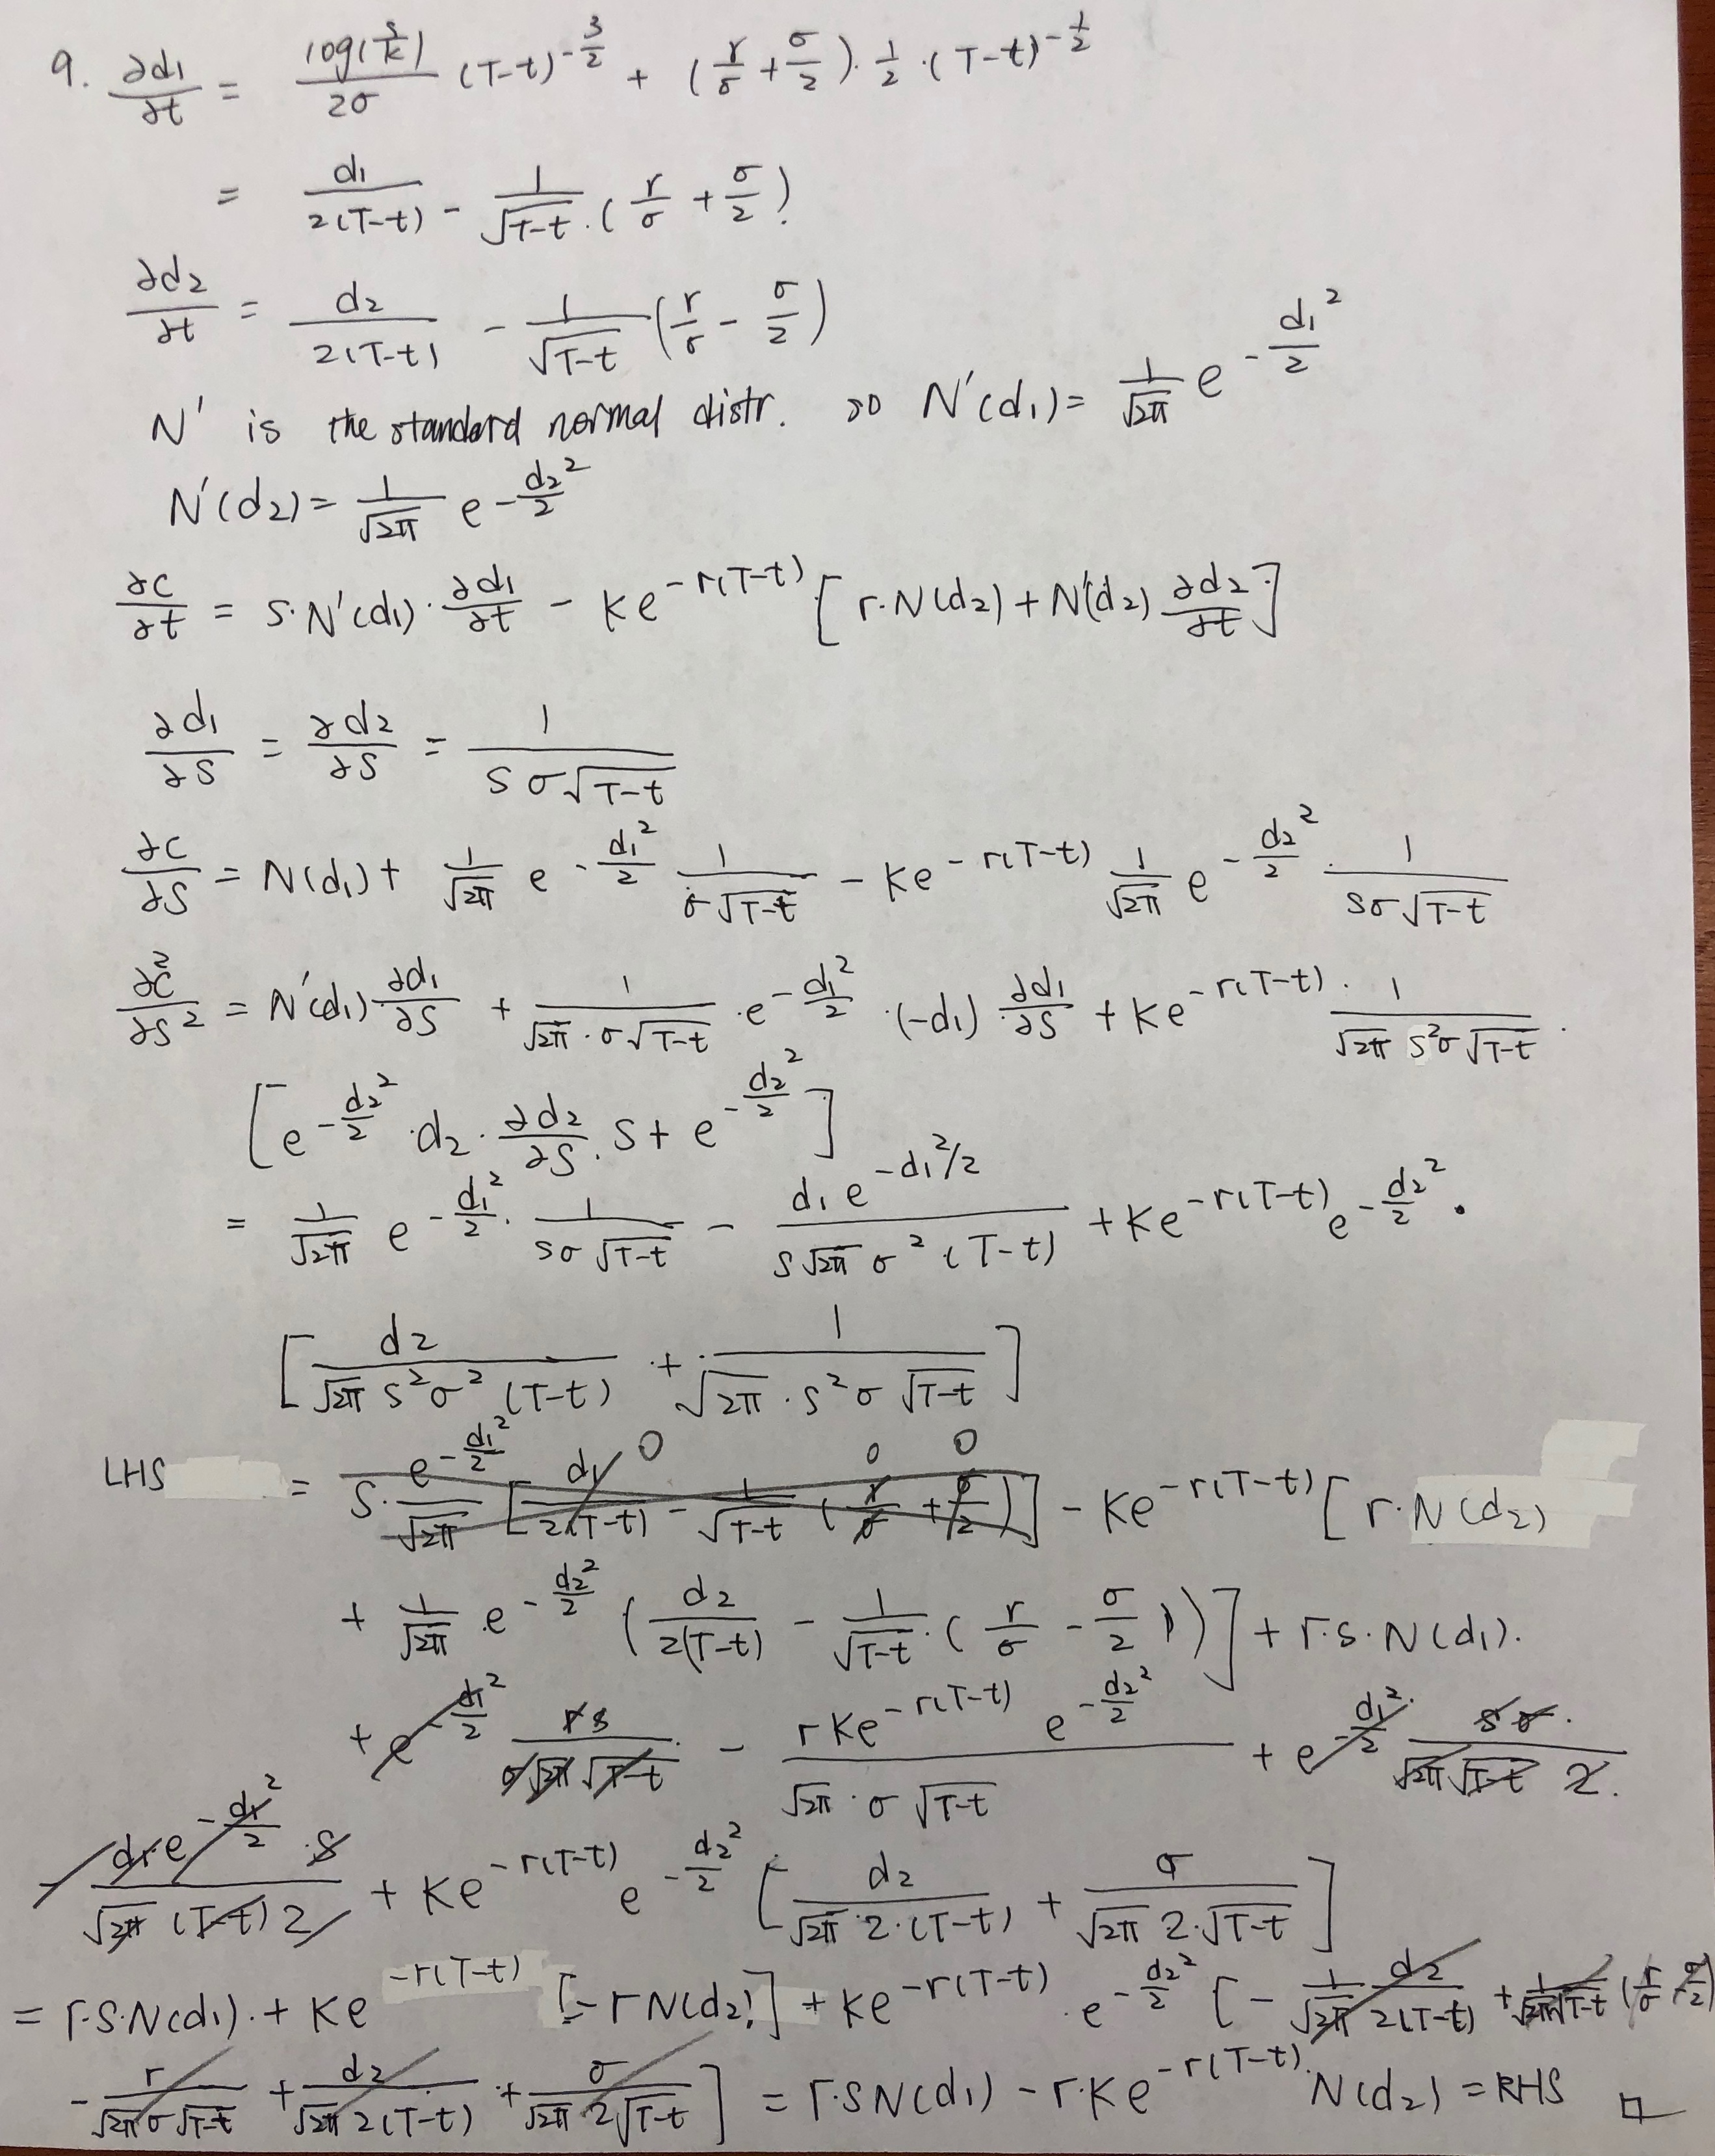 9. ∂d₁/∂t = log(S/K)/2σ (T-t)^(-3/2) + (r/σ + σ/2)·1/2·(T-t)^(-1/2)
= d₁/2(T-t) - 1/√(T-t)·(r/σ + σ/2)
∂d₂/∂t = d₂/2(T-t) - 1/√(T-t) (r/σ - σ/2)
N' is the standard normal distr. so N'(d₁) = 1/√2π e^(-d₁²/2)
N'(d₂) = 1/√2π e^(-d₂²/2)
∂C/∂t = S·N'(d₁)·∂d₁/∂t - Ke^(-r(T-t)) [r·N(d₂) + N'(d₂) ∂d₂/∂t]
∂d₁/∂S = ∂d₂/∂S = 1/Sσ√(T-t)
∂C/∂S = N(d₁) + 1/√2π e^(-d₁²/2) 1/σ√(T-t) - Ke^(-r(T-t)) 1/√2π e^(-d₂²/2)·1/Sσ√(T-t)
∂²C/∂S² = N'(d₁) ∂d₁/∂S + 1/√2π·σ√(T-t) ·e^(-d₁²/2)·(-d₁)·∂d₁/∂S + Ke^(-r(T-t))·1/√2π S²σ√(T-t)·
[e^(-d₂²/2)·d₂·∂d₂/∂S·S + e^(-d₂²/2)]
= 1/√2π e^(-d₁²/2)·1/Sσ√(T-t) - d₁e^(-d₁²/2)/S√2π σ²(T-t) + Ke^(-r(T-t)) e^(-d₂²/2)·
[d₂/√2π S²σ²(T-t) + 1/√2π·S²σ√(T-t)]
LHS = S·e^(-d₁²/2)/√2π [d₁/2(T-t) - 1/√(T-t) (r/σ + σ/2)] 0 0 0 - Ke^(-r(T-t)) [r·N(d₂)
+ 1/√2π·e^(-d₂²/2) (d₂/2(T-t) - 1/√(T-t)·(r/σ - σ/2))] + r·S·N(d₁).
+ e^(-d₁²/2) rS/σ√2π√(T-t) - rKe^(-r(T-t)) e^(-d₂²/2)/√2π·σ√(T-t) + e^(-d₁²/2) Sσ/√2π√(T-t) 2.
- d₁e^(-d₁²/2)·S/√2π(T-t)2 + Ke^(-r(T-t)) e^(-d₂²/2) [d₂/√2π·2·(T-t) + σ/√2π 2·√(T-t)]
= r·S·N(d₁)·+ Ke^(-r(T-t)) [-rN(d₂)] + Ke^(-r(T-t))·e^(-d₂²/2) [- 1/√2π d₂/2(T-t) + 1/√2π√(T-t) (r/σ - σ/2)
- r/√2πσ√(T-t) + d₂/√2π 2(T-t) + σ/√2π 2√(T-t)] = r·SN(d₁) - r·Ke^(-r(T-t))·N(d₂) = RHS □